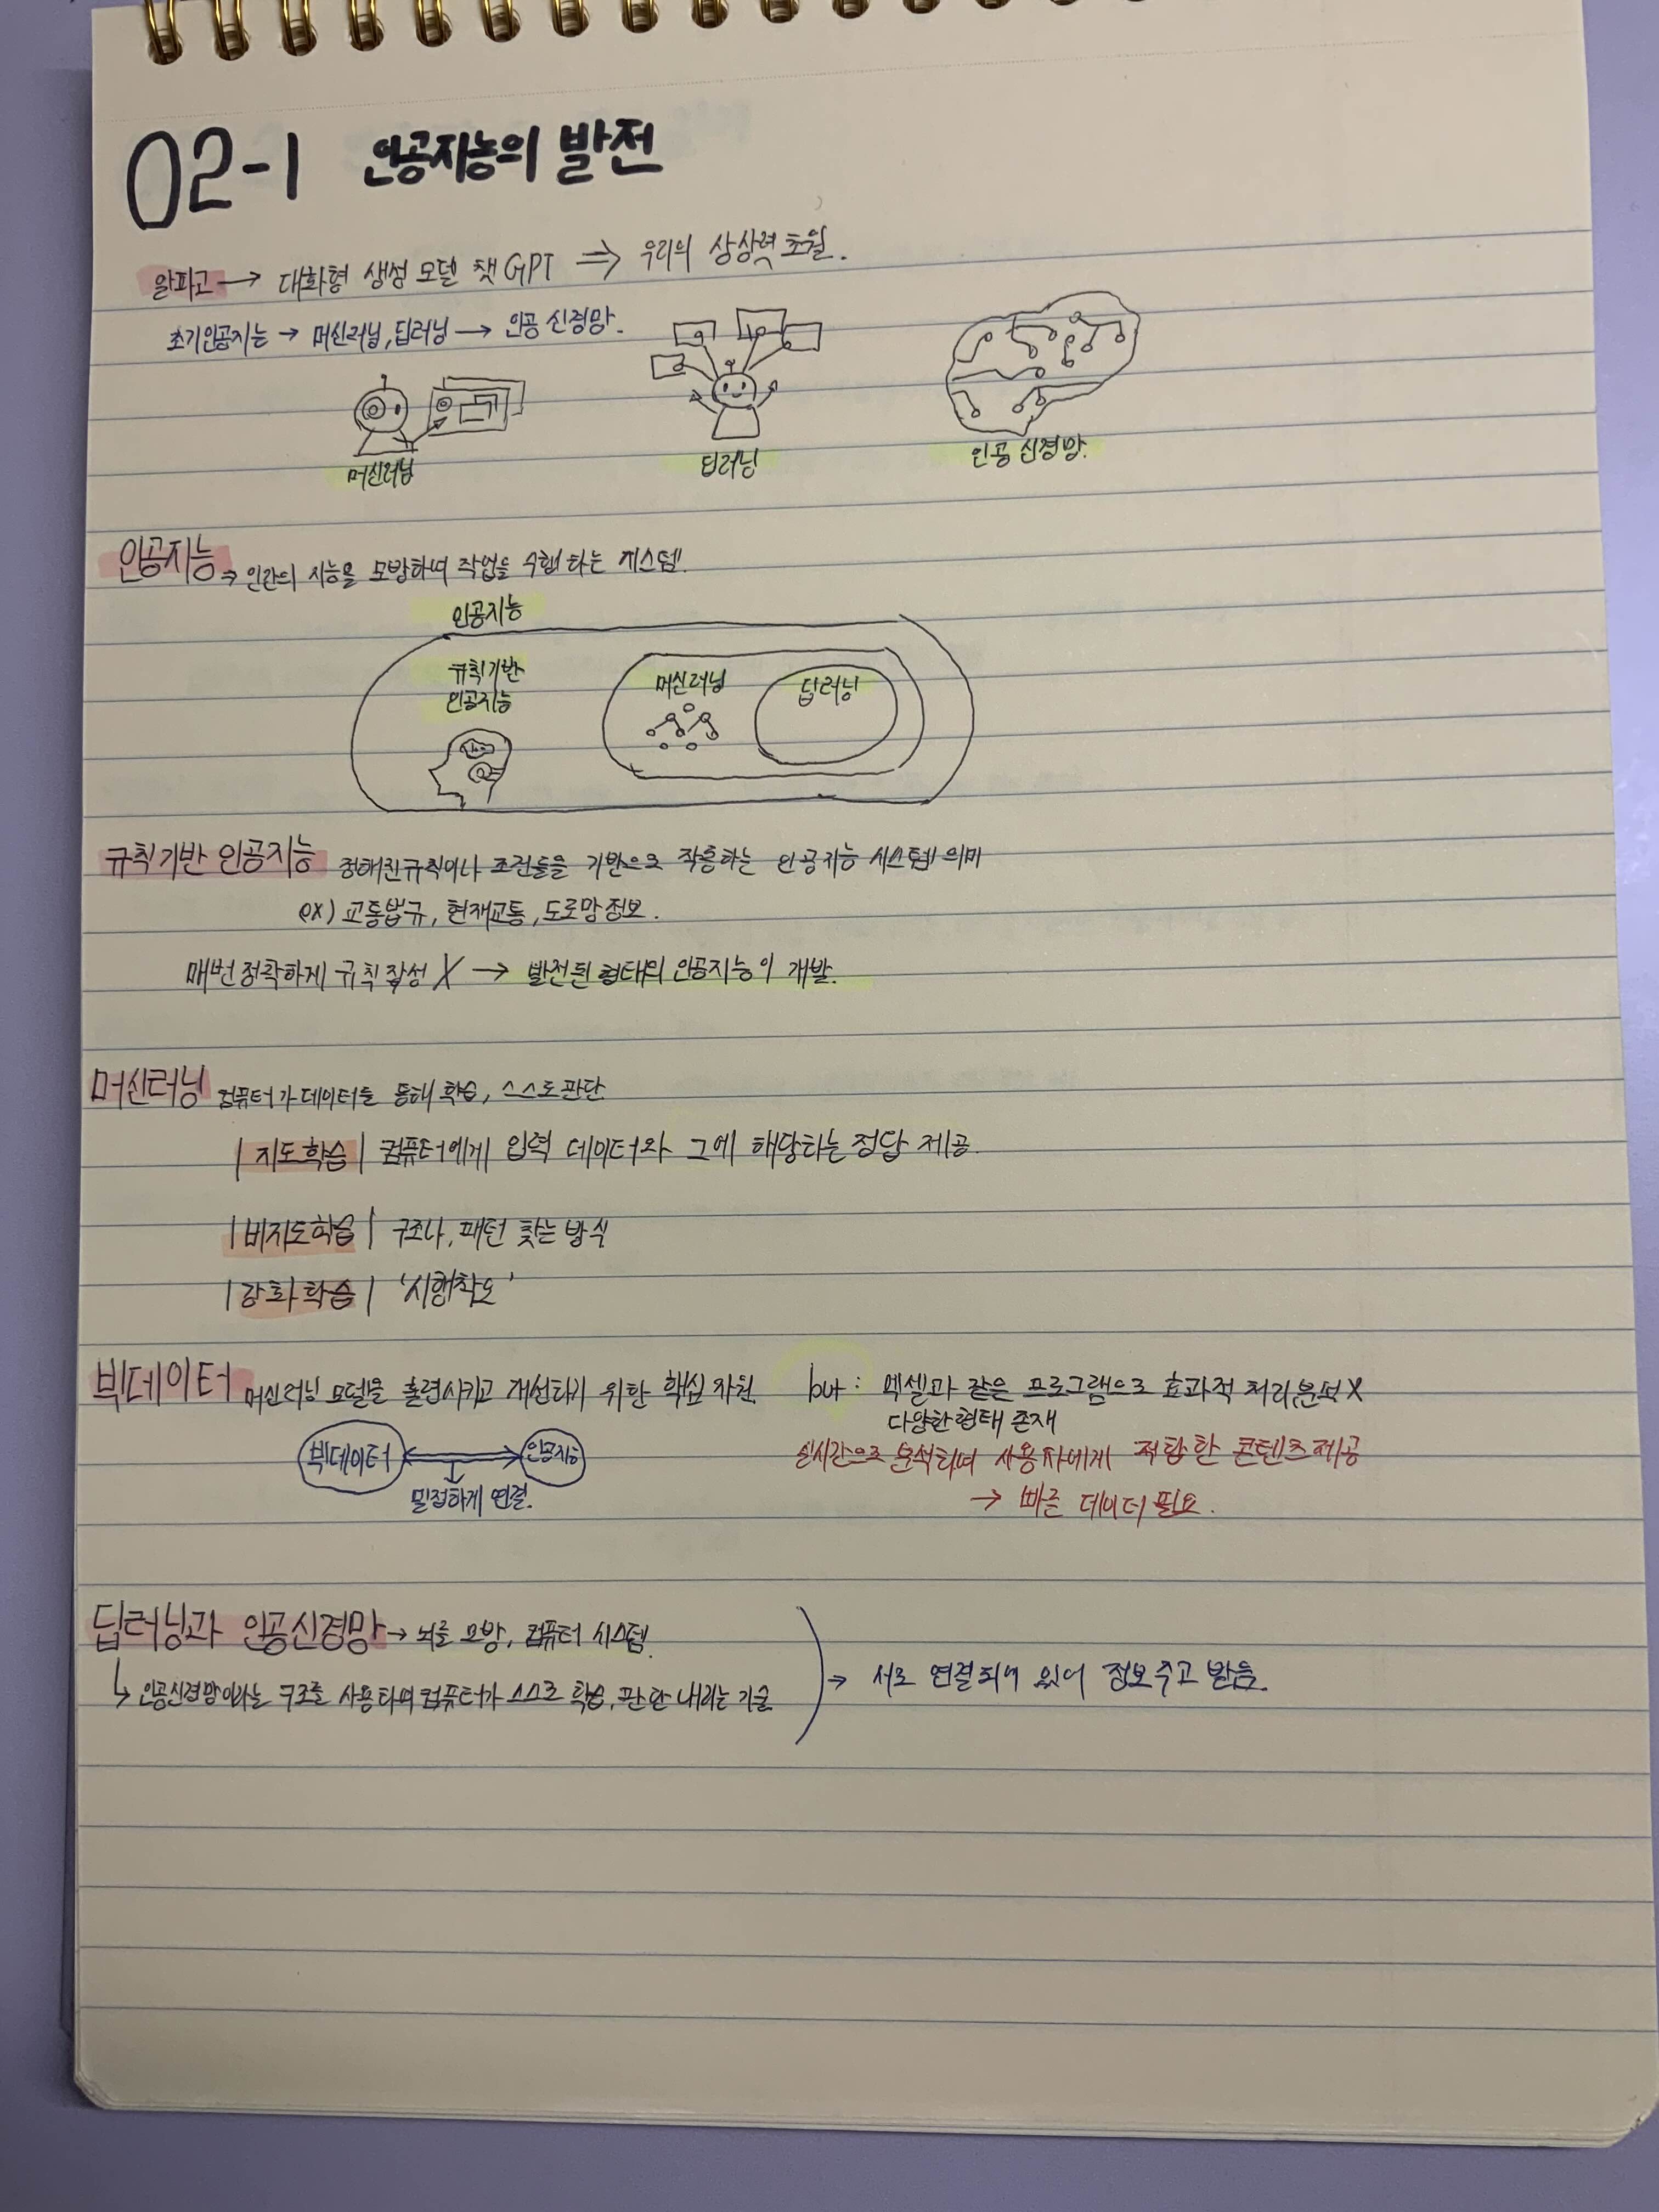 02-1 인공지능의 발전
알파고 → 대화형 생성 모델 챗GPT ⇒ 우리의 상상력 초월.
초기인공지능 → 머신러닝, 딥러닝 → 인공 신경망.
머신러닝
딥러닝
인공 신경망.
인공지능 → 인간의 지능을 모방하여 작업을 수행하는 시스템.
인공지능
규칙기반
인공지능
머신러닝
딥러닝
규칙기반 인공지능 정해진규칙이나 조건들을 기반으로 작동하는 인공지능 시스템 의미
ex) 교통법규, 현재교통, 도로망정보.
매번 정확하게 규칙작성 X → 발전된 형태의 인공지능이 개발.
머신러닝 컴퓨터가 데이터를 통해 학습, 스스로판단
| 지도학습 | 컴퓨터에게 입력 데이터와 그에 해당하는 정답 제공.
| 비지도학습 | 구조나, 패턴 찾는 방식
| 강화학습 | '시행착오'
빅데이터 머신러닝 모델을 훈련시키고 개선하기 위한 핵심 자원 but : 엑셀과 같은 프로그램으로 효과적 처리,분석 X
다양한형태 존재
빅데이터 ↔ 인공지능
밀접하게 연결.
실시간으로 분석하여 사용자에게 적합한 콘텐츠제공
→ 빠른 데이터 필요.
딥러닝과 인공신경망 → 뇌를 모방, 컴퓨터 시스템.
↳ 인공신경망이라는 구조를 사용하여 컴퓨터가 스스로 학습, 판단 내리는 기술
→ 서로 연결되어 있어 정보주고 받음.